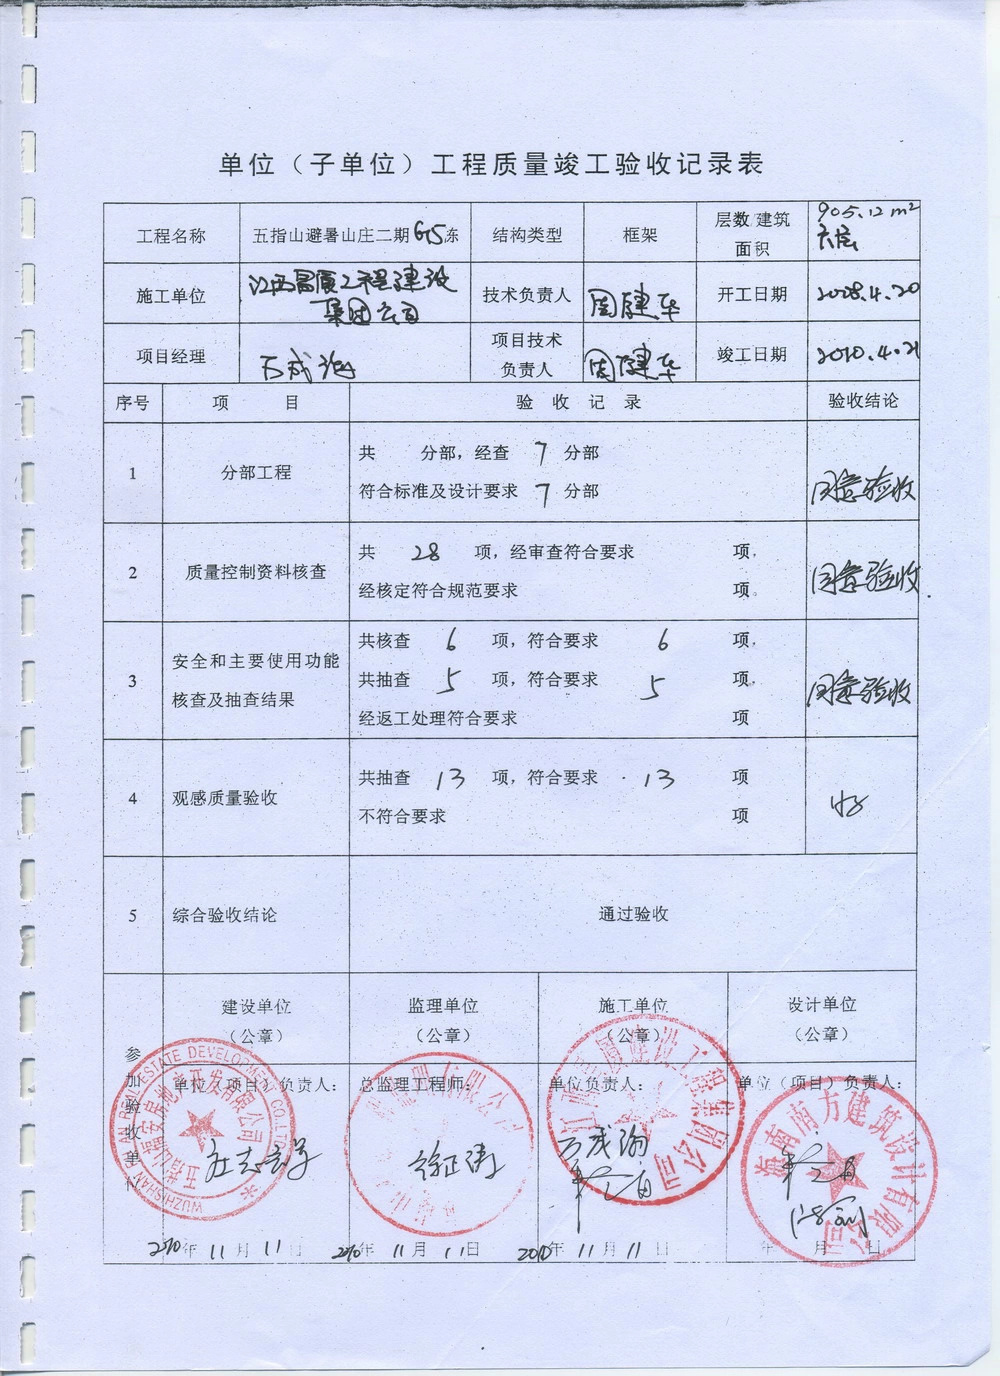 单位（子单位）工程质量竣工验收记录表
工程名称
五指山避暑山庄二期G15东
结构类型
框架
层数/建筑面积
905.12m²
六层
施工单位
江西昌厦工程建设
集团公司
技术负责人
周建华
开工日期
2008.4.20
项目经理
万成海
项目技术
负责人
周建华
竣工日期
2010.4.21
序号
项 目
验 收 记 录
验收结论
1
分部工程
共 分部，经查 7 分部
符合标准及设计要求 7 分部
同意验收
2
质量控制资料核查
共 28 项，经审查符合要求 项，
经核定符合规范要求 项。
同意验收
3
安全和主要使用功能
核查及抽查结果
共核查 6 项，符合要求 6 项，
共抽查 5 项，符合要求 5 项，
经返工处理符合要求 项
同意验收
4
观感质量验收
共抽查 13 项，符合要求 13 项
不符合要求 项
好
5
综合验收结论
通过验收
参加验收单位
建设单位
（公章）
监理单位
（公章）
施工单位
（公章）
设计单位
（公章）
单位（项目）负责人：
总监理工程师：
单位负责人：
单位（项目）负责人：
海南南方建筑设计有限公司
2010年11月11日
2010年11月11日
2010年11月11日
年 月 日